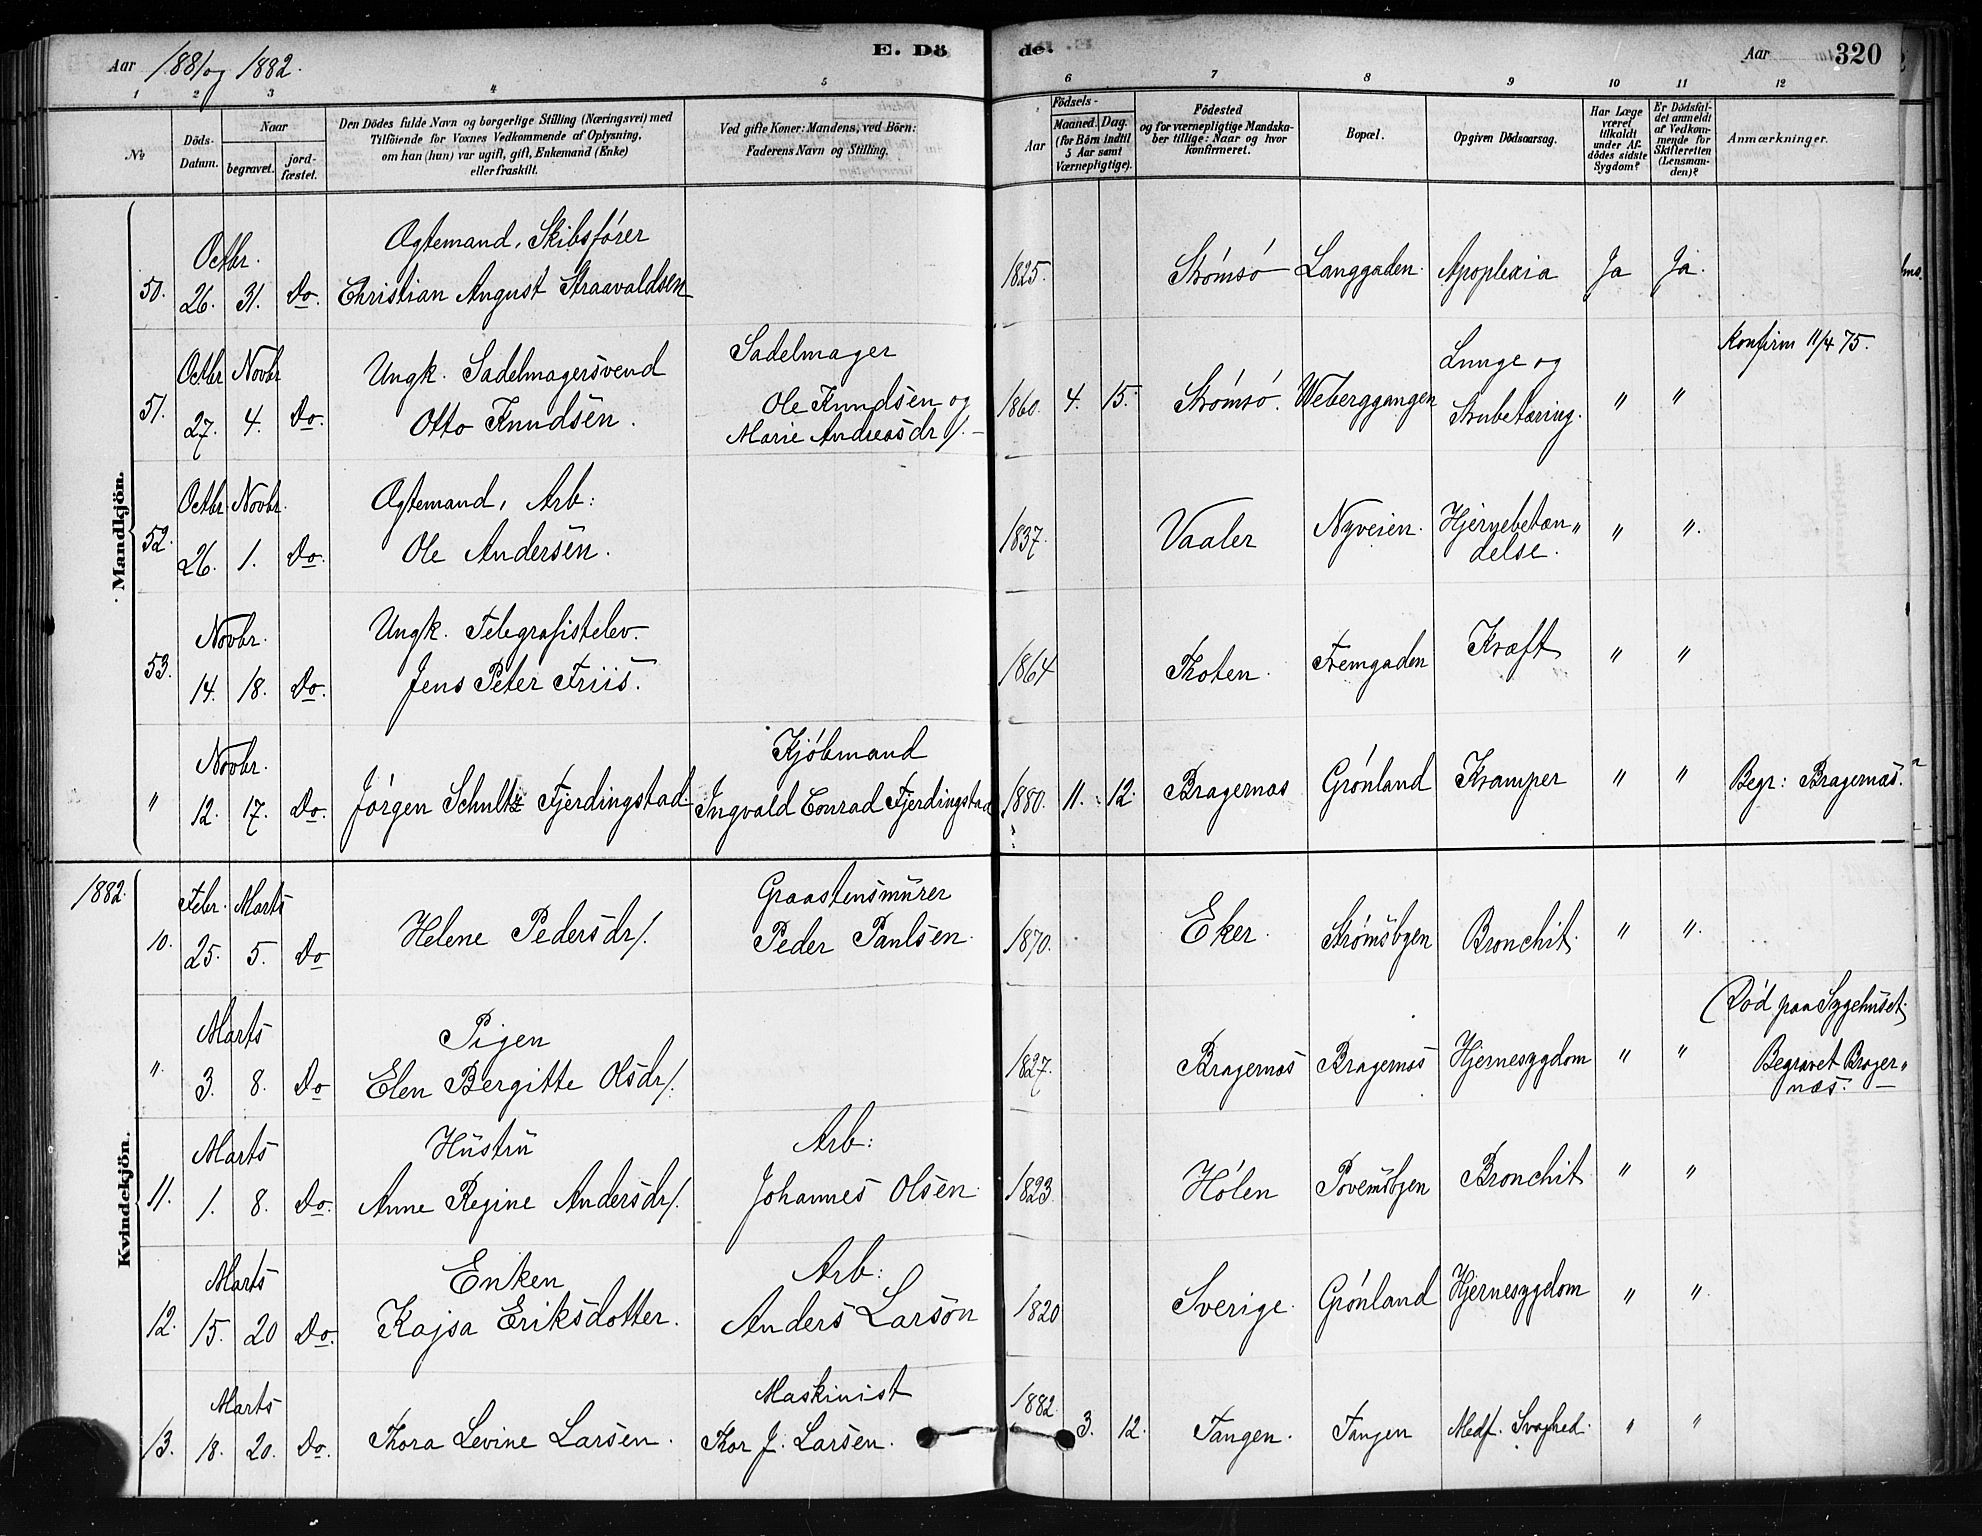 Aar 1881 og 1882.
E. Döde.
Aar
320
1 2 3 4 5 6 7 8 9 10 11 12
No
Döds-Datum.
Naar
begravet.
jord-fæstet.
Den Dödes fulde Navn og borgerlige Stilling (Næringsvei) med
Tilföiende for Voxnes Vedkommende af Oplysning,
om han (hun) var ugift, gift, Enkemand (Enke)
eller fraskilt.
Ved gifte Koner: Mandens, ved Börn:
Faderens Navn og Stilling.
Födsels-
Aar
Maaned. Dag.
(for Börn indtil
5 Aar samt
Værnepligtige).
Födested
og for værnepligtige Mandska-
ber tillige: Naar og hvor
konfirmeret.
Bopæl.
Opgiven Dödsaarsag.
Har Læge
været
tilkaldt
under Af-
dödes sidste
Sygdom?
Er Dödsfal-
det anmeldt
af Vedkom-
mende for
Skifteretten
(Lensman-
den)?
Anmærkninger.
Mandkjön.
Octbr. Ægtemand, Skibsfører
50. 26. 31. Do. Christian August Straavaldsen 1825. Strømsø Langgaden. Apoplexia Ja Ja.
Octbr Novbr Ungk. Sadelmagersvend Sadelmager Lunge og Konfirm 11/4 75.
51. 27. 4. Do. Otto Knudsen. Ole Knudsen og 1860. 4. 15. Strømsø. Weberggangen Strubetæring. " "
Marie Andreasdr/. –
Octbr. Novbr. Ægtemand, Arb:
52. 26. 1. Do. Ole Andersen. 1837. Vaaler Nyveien. Hjernebetæn" " ".
delse.
Novbr. Ungk. Telegrafistelev.
53. 14. 18. Do. Jens Peter Friis. 1864 Thoten. Fremgaden Kræft " "
Novbr. Kjøbmand
" 12. 17. Do. Jørgen Schultz Fjerdingstad Ingvald Conrad Fjerdingstad 1880. 11. 12. Bragernæs Grønland Kramper " " Begr: Bragernæs.
1882.
Kvindekjön.
Febr. Marts Graastensmurer
10. 25. 5. Do Helene Pedersdr/. Peder Paulsen. 1870. Eker. Strømsbyen Bronchit. " ".
Marts Pigen (Død paa Sygehuset)
". 3. 8. Do Elen Bergitte Olsdr/. 1827. Bragernæs Bragernæs Hjernesygdom " " Begravet Brager"
næs. –
Marts Hustru Arb:
11. 1. 8. Do. Anne Regine Andersdr/. Johannes Olsen. 1823. Hølen Bronchit " "
Marts Enken Arb:
12. 15. 20 Do. Kajsa Eriksdotter. Anders Larson 1820 Sverige. Grønland Hjernesygdom " ".
Marts Maskinist 1882.
13. 18. 20. Do. Thora Levine Larsen. Thor J. Larsen. 3. 12. Tangen. Tangen Medf. Svaghed. " "